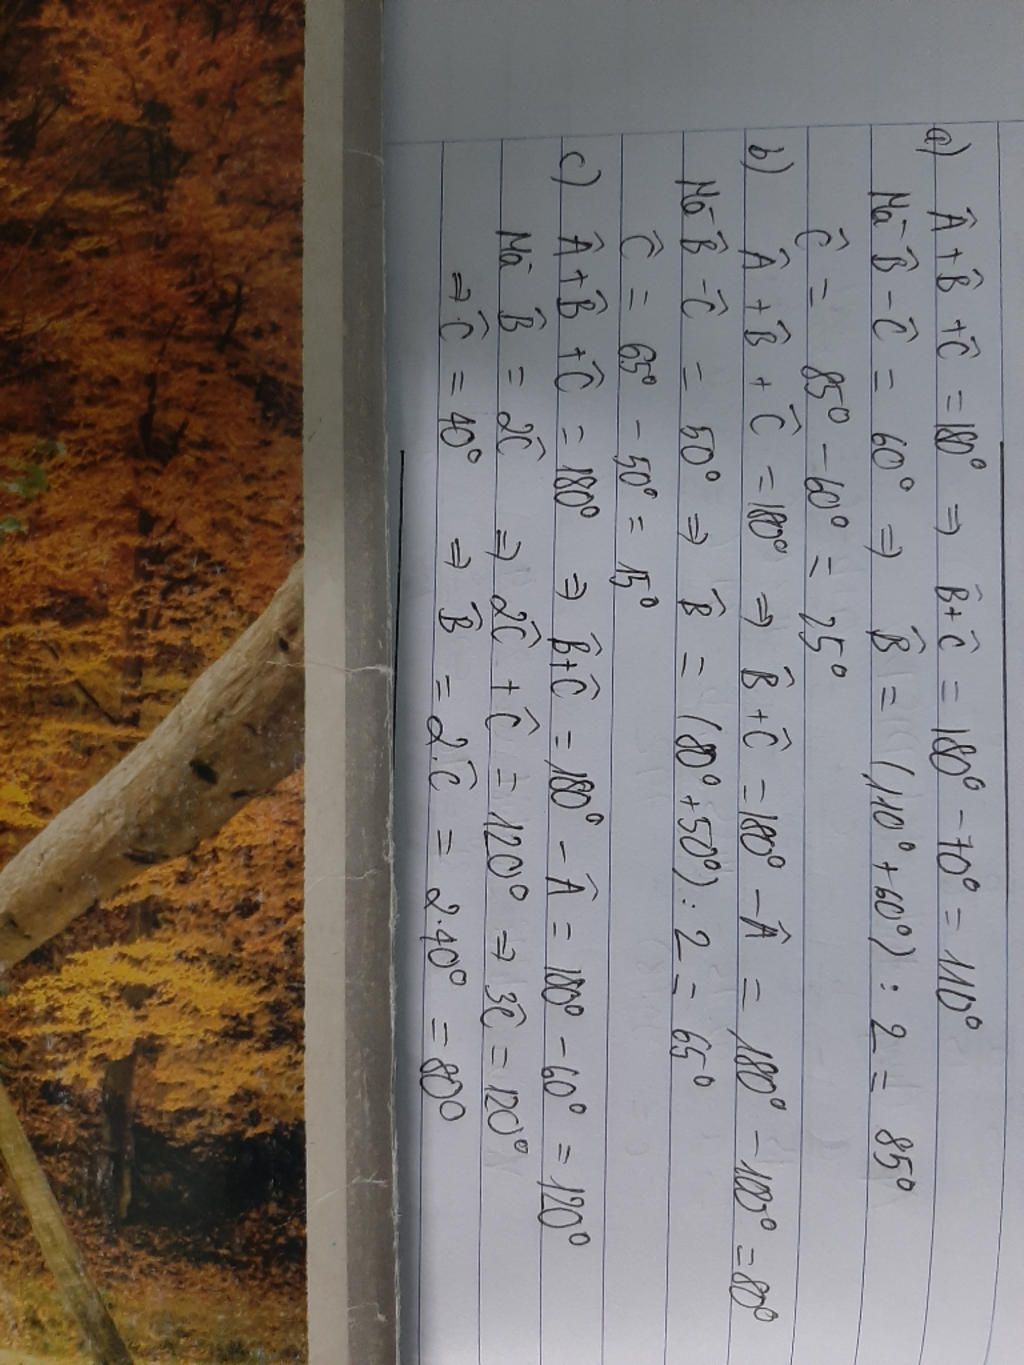 a) Â + B̂ + Ĉ = 180° ⇒ B̂ + Ĉ = 180° - 70° = 110°
Mà B̂ - Ĉ = 60° ⇒ B̂ = (110° + 60°) : 2 = 85°
Ĉ = 85° - 60° = 25°
b) Â + B̂ + Ĉ = 180° ⇒ B̂ + Ĉ = 180° - Â = 180° - 100° = 80°
Mà B̂ - Ĉ = 50° ⇒ B̂ = (80° + 50°) : 2 = 65°
Ĉ = 65° - 50° = 15°
c) Â + B̂ + Ĉ = 180° ⇒ B̂ + Ĉ = 180° - Â = 180° - 60° = 120°
Mà B̂ = 2Ĉ ⇒ 2Ĉ + Ĉ = 120° ⇒ 3Ĉ = 120°
⇒ Ĉ = 40° ⇒ B̂ = 2.Ĉ = 2.40° = 80°